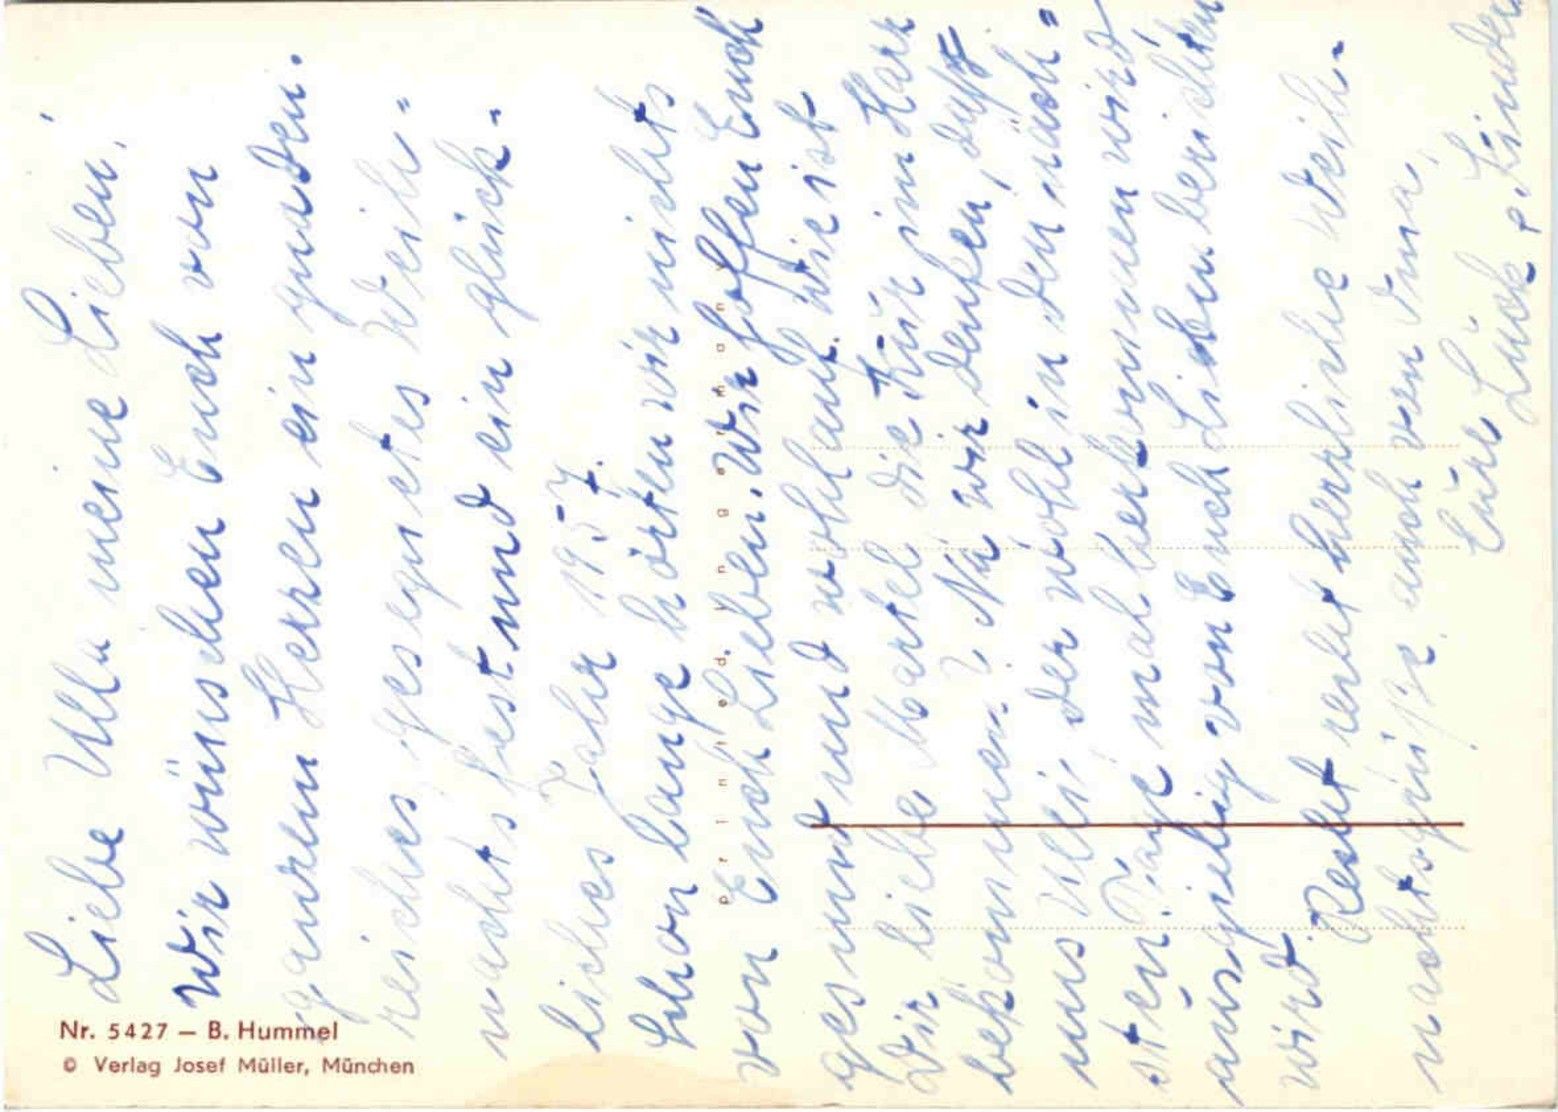 Liebe Ulla meine Lieben!
Wir wünschen Euch von
ganzem Herzen ein gnaden-
reiches, gesegnetes Weih-
nachtsfest und ein glück-
liches Jahr 1957.
Schon lange hörten wir nichts
von Euch Lieben. Wir hoffen Euch
gesund und wohlauf. Wie ist
Dir liebe Martel die Kur im Harz
bekommen? Nu wir denken, daß
uns Ulli, der wohl in den näch-
sten Tage mal herkommen wird
ausgiebig von Euch Lieben berichten
wird. Recht recht herzliche Weih-
nachtsgrüße auch von Oma,
Eure Luck u. Kinder
Printed in Germany
Nr. 5427 — B. Hummel
© Verlag Josef Müller, München